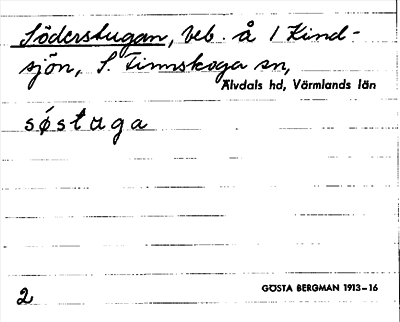 Söderstugan, beb. å 1 Kind-
sjön, S. Finnskoga sn,
Älvdals hd, Värmlands län
sǿstuga
2
GÖSTA BERGMAN 1913–16